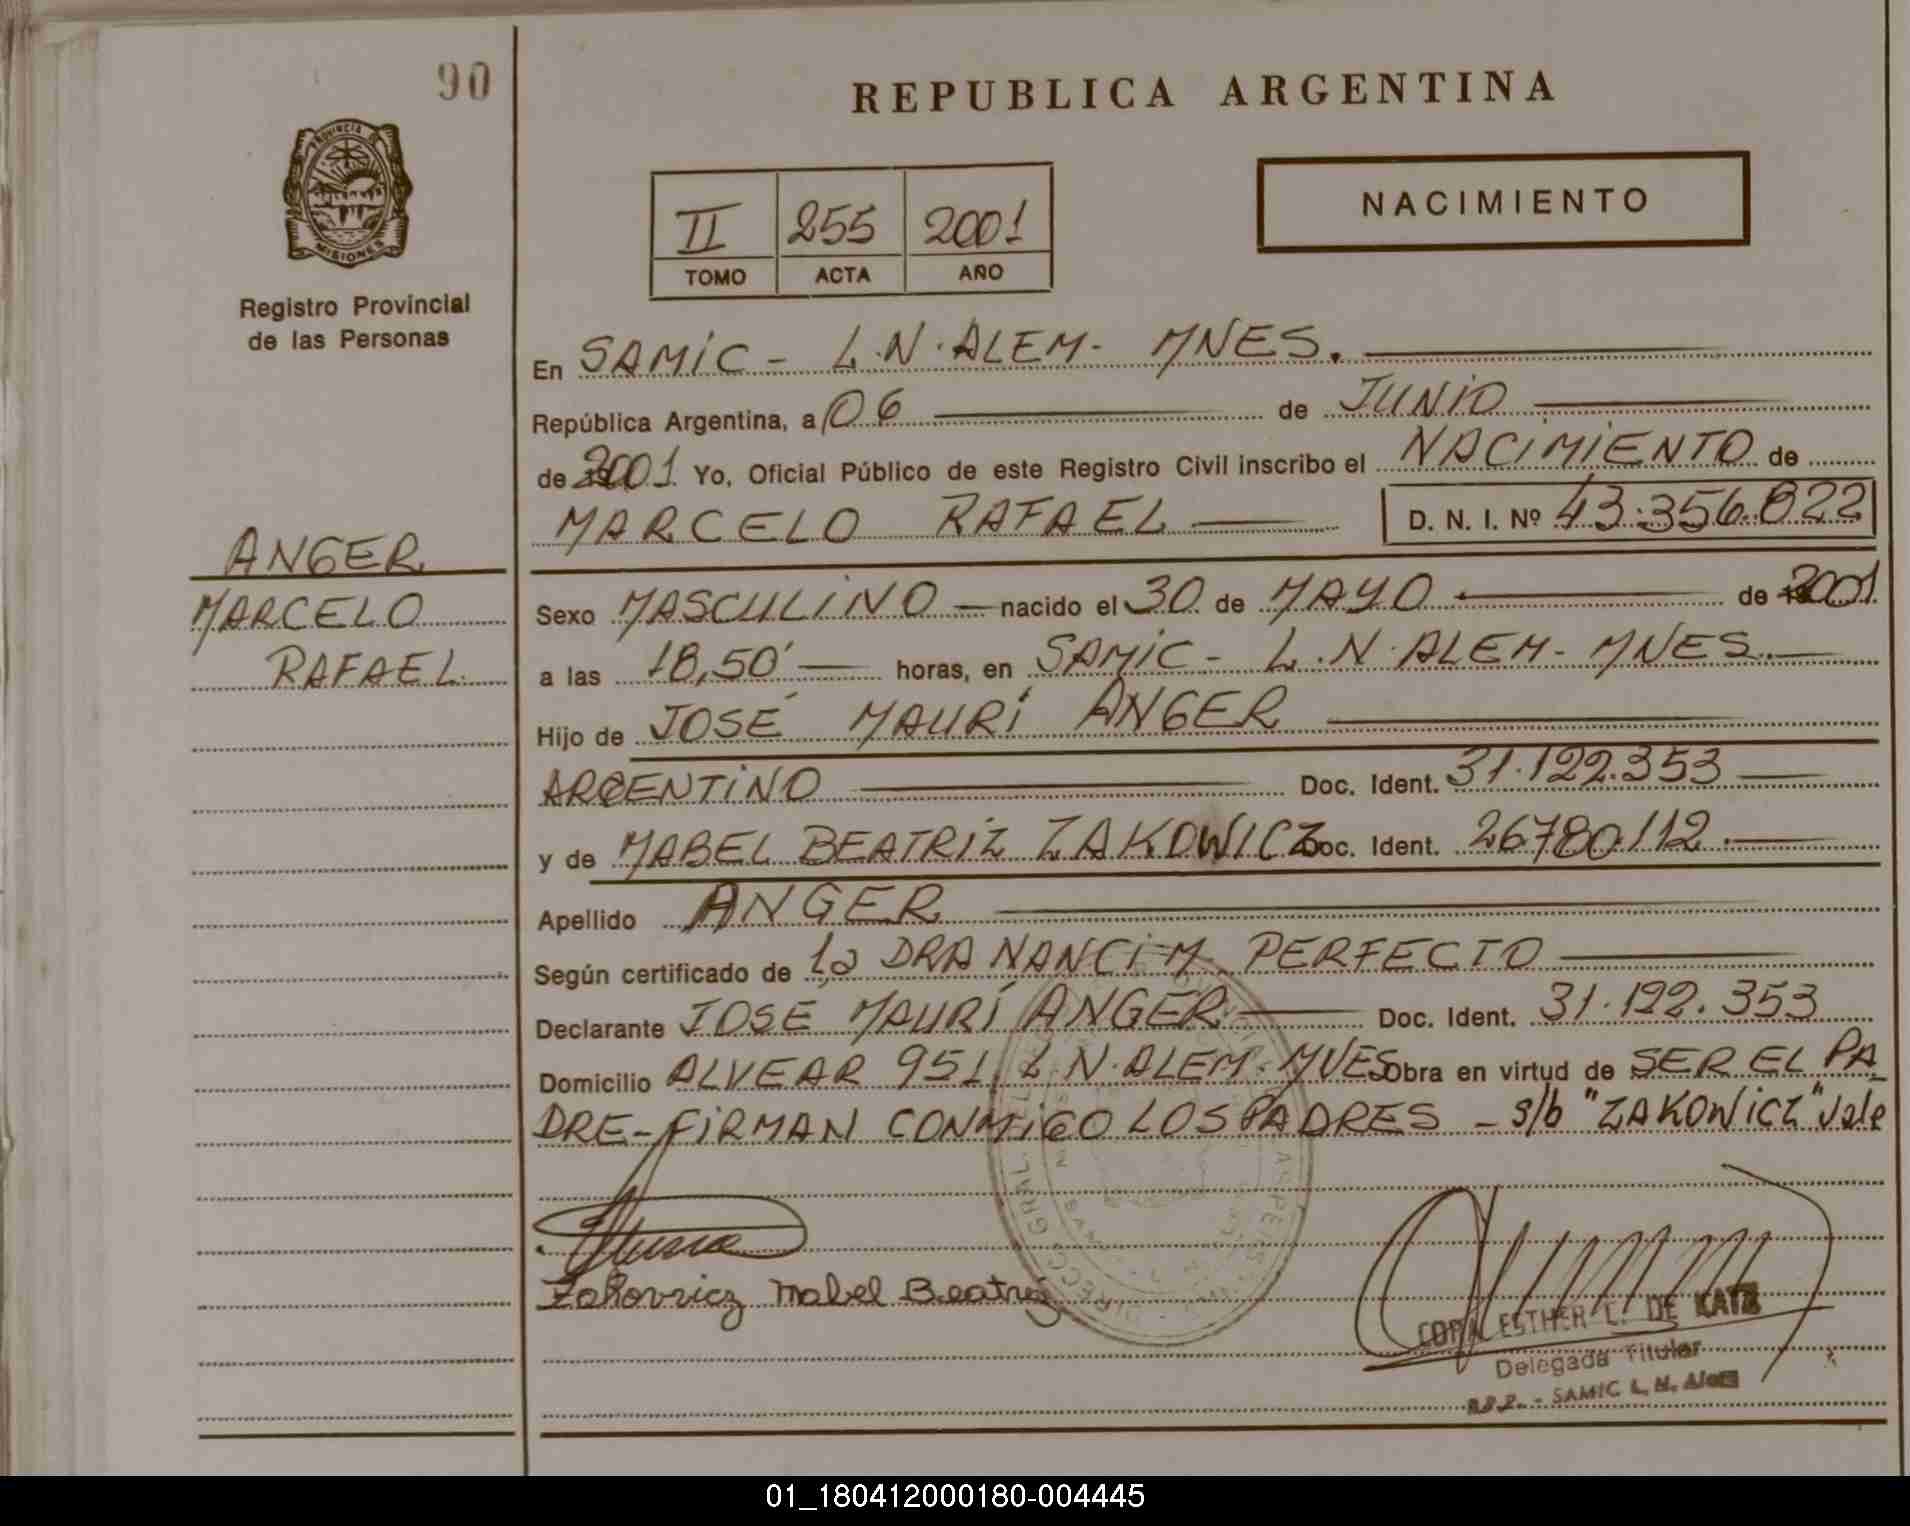 90
REPUBLICA ARGENTINA
PROVINCIA DE
MISIONES
Registro Provincial
de las Personas
II 255 2001
TOMO ACTA AÑO
NACIMIENTO
En SAMIC - L.N. ALEM - MNES.
República Argentina, a 06 de JUNIO
de 2001. Yo, Oficial Público de este Registro Civil inscribo el NACIMIENTO de
MARCELO RAFAEL D. N. I. Nº 43.356.822
ANGER
MARCELO
RAFAEL
Sexo MASCULINO nacido el 30 de MAYO de 2001
a las 18,50' horas, en SAMIC - L.N. ALEM - MNES.
Hijo de JOSÉ MAURÍ ANGER
ARGENTINO Doc. Ident. 31.122.353
y de MABEL BEATRIZ ZAKOWICZ Doc. Ident. 26780.112
Apellido ANGER
Según certificado de la DRA NANCI M. PERFECTO
Declarante JOSÉ MAURÍ ANGER Doc. Ident. 31.122.353
Domicilio ALVEAR 951, L.N. ALEM - MNES Obra en virtud de SER EL PA-
DRE - FIRMAN CONMIGO LOS PADRES - s/b "ZAKOWICZ" Vale
Zakowicz Mabel Beatriz
ESTHER L. DE KATZ
Delegada Titular
R.P.P. - SAMIC L. N. Alem
01_180412000180-004445